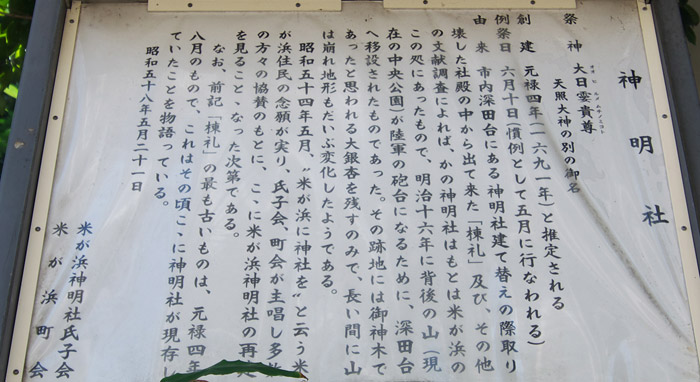 神明社
祭神 大日孁貴尊
オオヒルメムチノミコト
天照大神の別の御名
創建 元禄四年(一六九一年)と推定される
例祭日 六月十日慣例として五月に行なわれる)
由来 市内深田台にある神明社建て替えの際取り
壊した社殿の中から出て来た「棟礼」及び、その他
の文献調査によれば、かの神明社はもとは米が浜の
この処にあったもので、明治十六年に背後の山(現
在の中央公園)が陸軍の砲台になるために、深田台
へ移設されたものであった。その跡地には御神木で
あったと思われる大銀杏を残すのみで、長い間に山
は崩れ地形もだいぶ変化したようである。
昭和五十四年五月、〝米が浜に神社を〟と云う米
が浜住民の念願が実り、氏子会、町会が主唱し多
の方々の協賛のもとに、こゝに米が浜神明社の再
を見ることゝなった次第である。
なお、前記「棟礼」の最も古いものは、元禄四年
八月のもので、これはその頃こゝに神明社が現存し
ていたことを物語っている。
昭和五十八年五月二十一日
米が浜神明社氏子会
米が浜町会